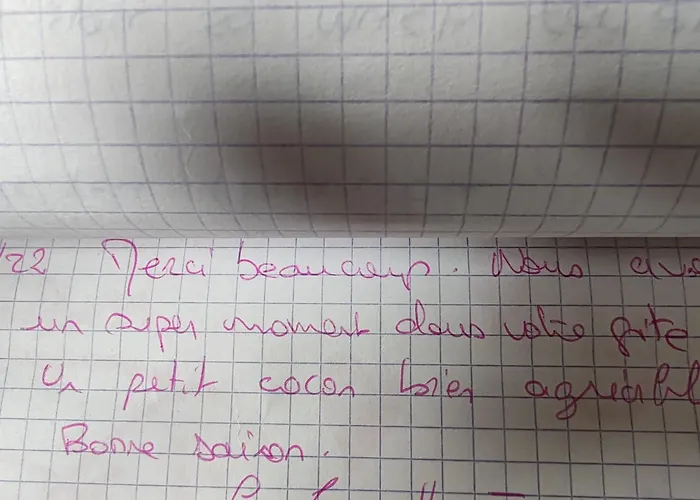 /22 Merci beaucoup. Nous av
un super moment dans votre gite
Un petit cocon bien agréabl
Bonne saison.